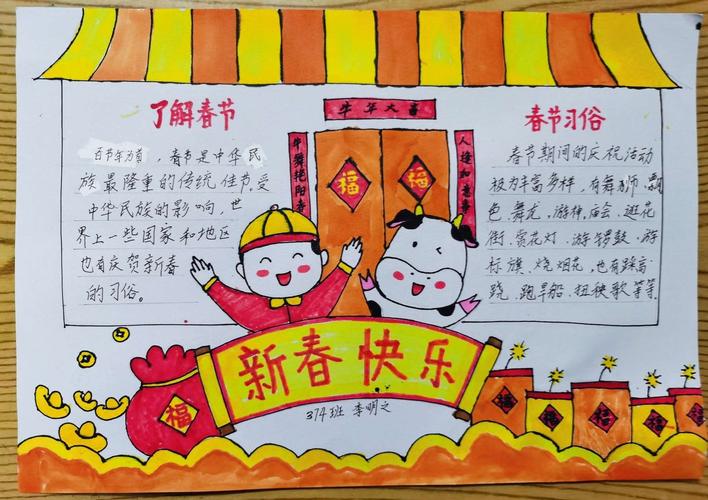 牛年大吉
了解春节
百节年为首，春节是中华民
族最隆重的传统佳节。受
中华民族的影响，世
界上一些国家和地区
也有庆贺新春
的习俗。
牛舞艳阳春
福
福
人逢如意春
春节习俗
春节期间的庆祝活动
极为丰富多样，有舞狮、飘
色、舞龙、游神、庙会、逛花
街、赏花灯、游锣鼓、游
标旗、烧烟花，也有踩高
跷、跑旱船、扭秧歌等等。
新春快乐
374班 李明之
福
福
福
福
福
福